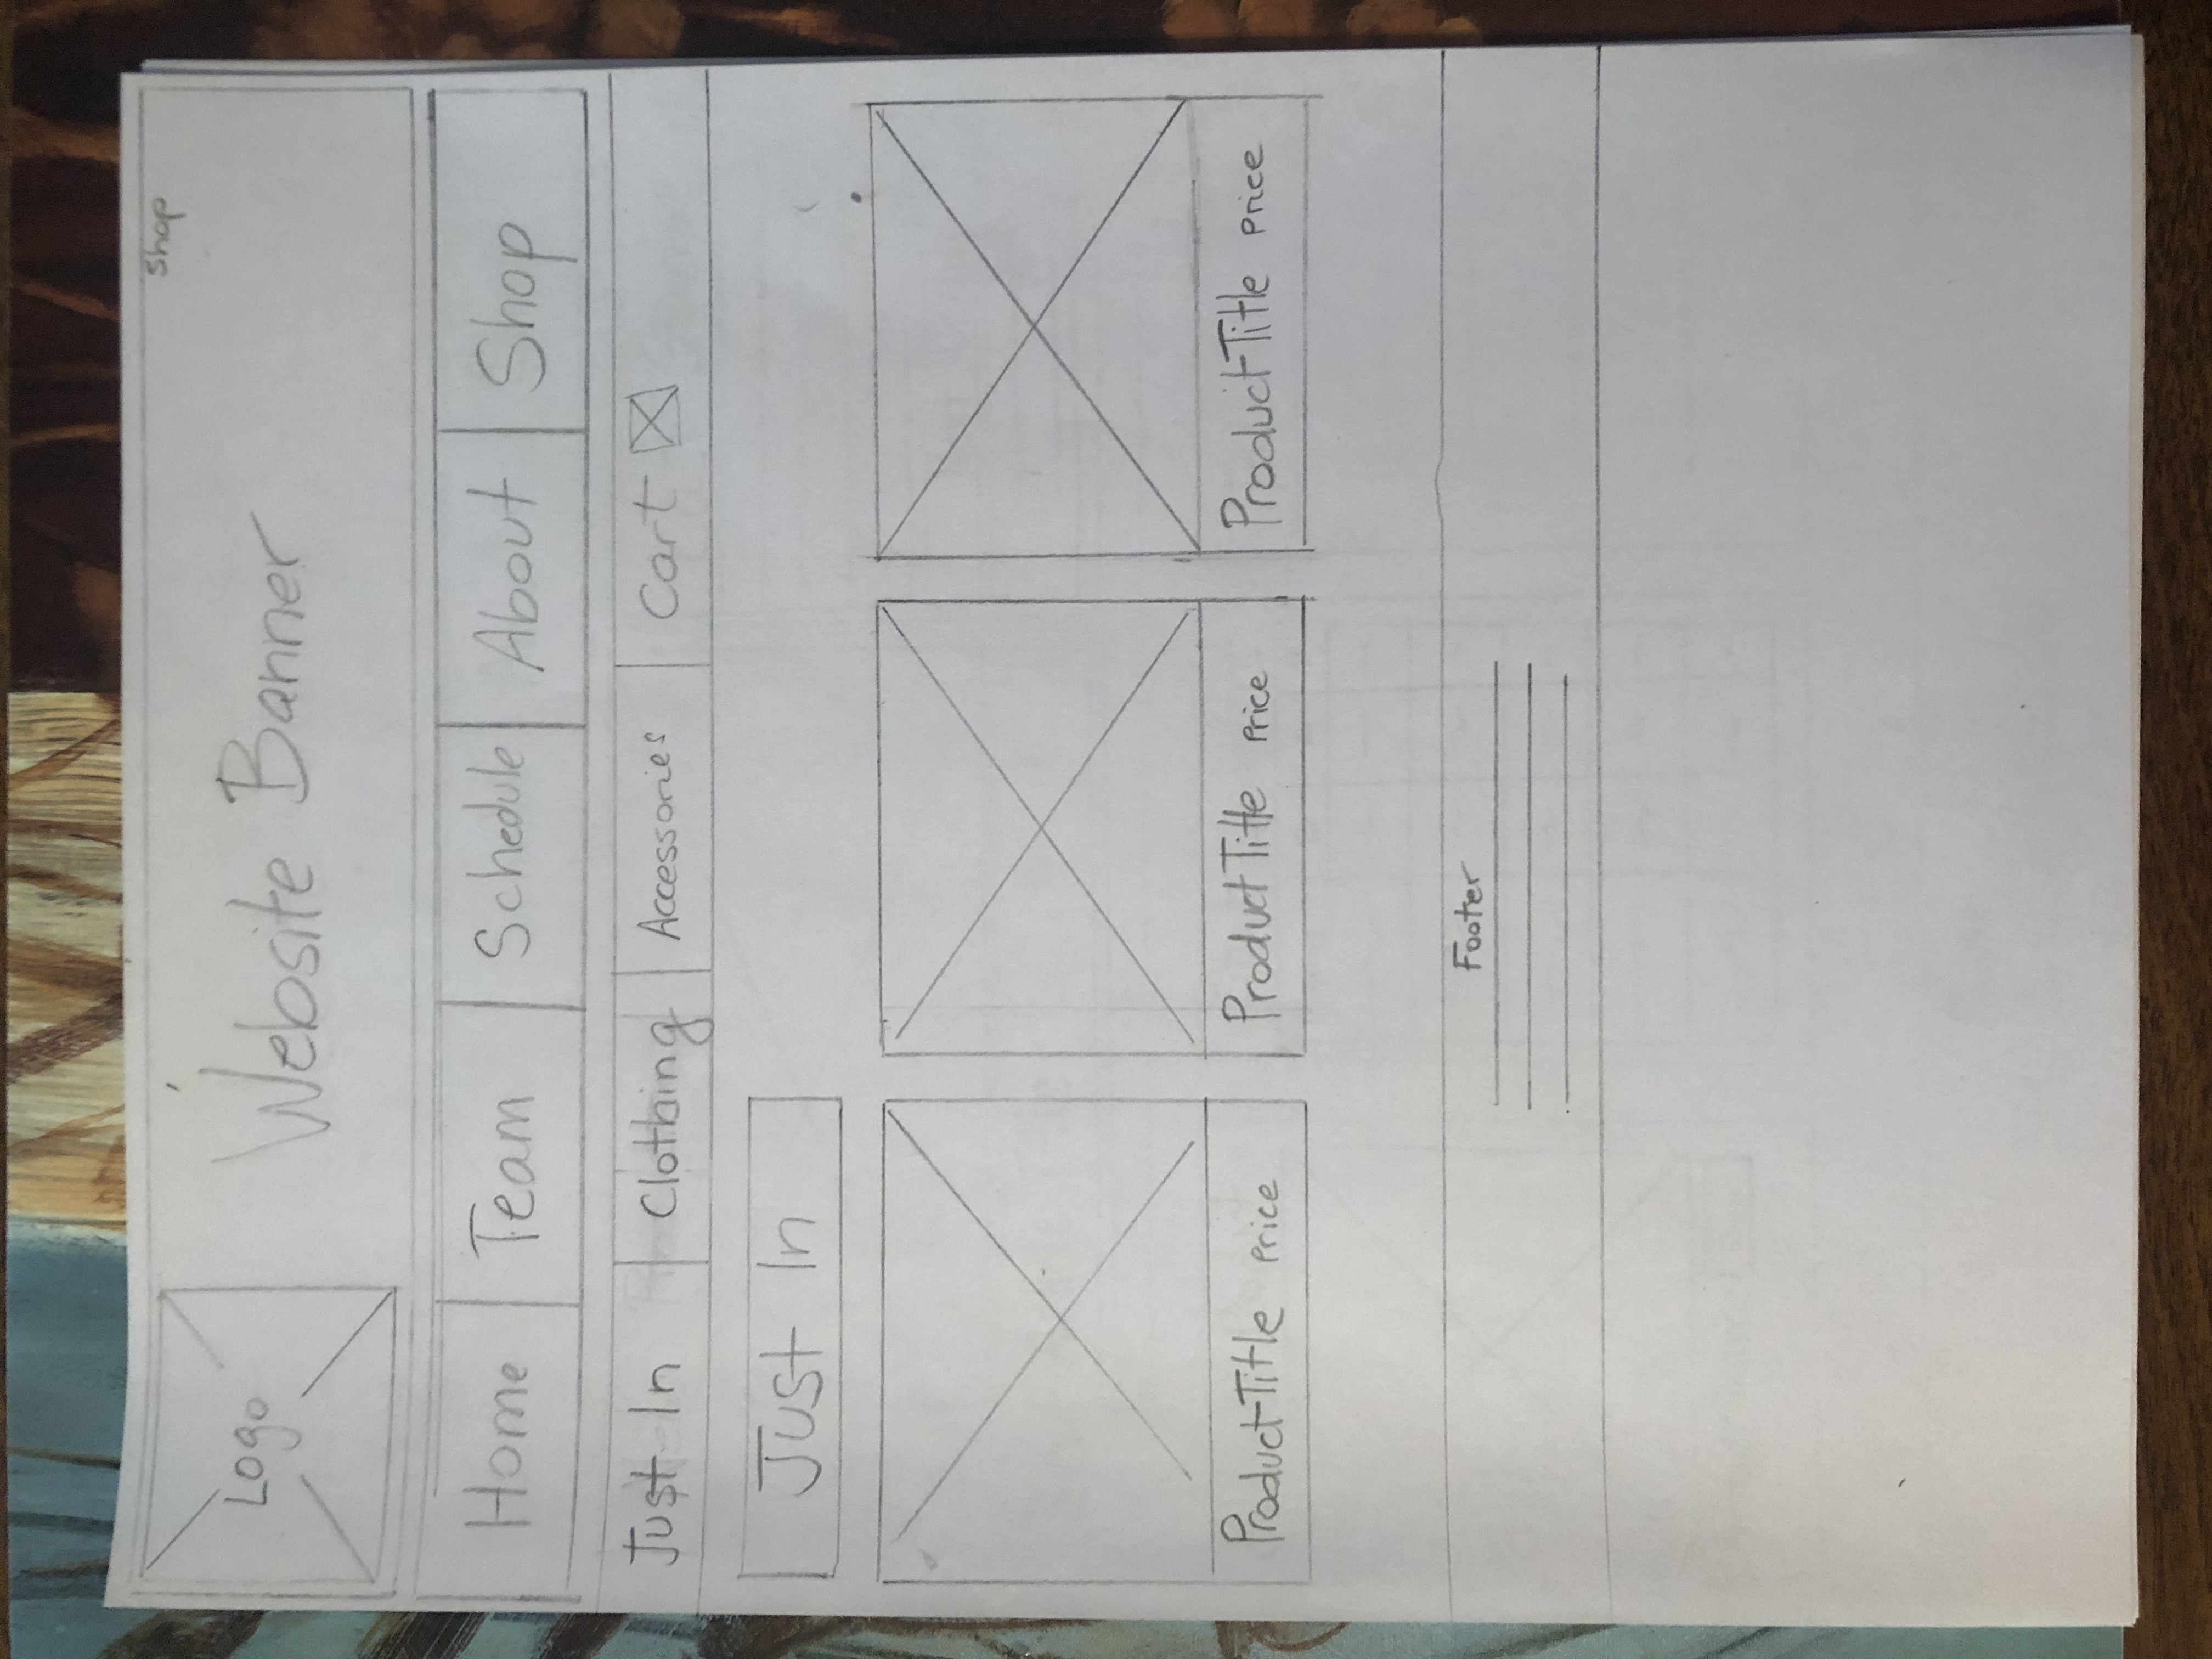 Shop
Logo
Website Banner
Home Team Schedule About Shop
Just In Clothing Accessories Cart
Just In
Product Title Price Product Title Price Product Title Price
Footer